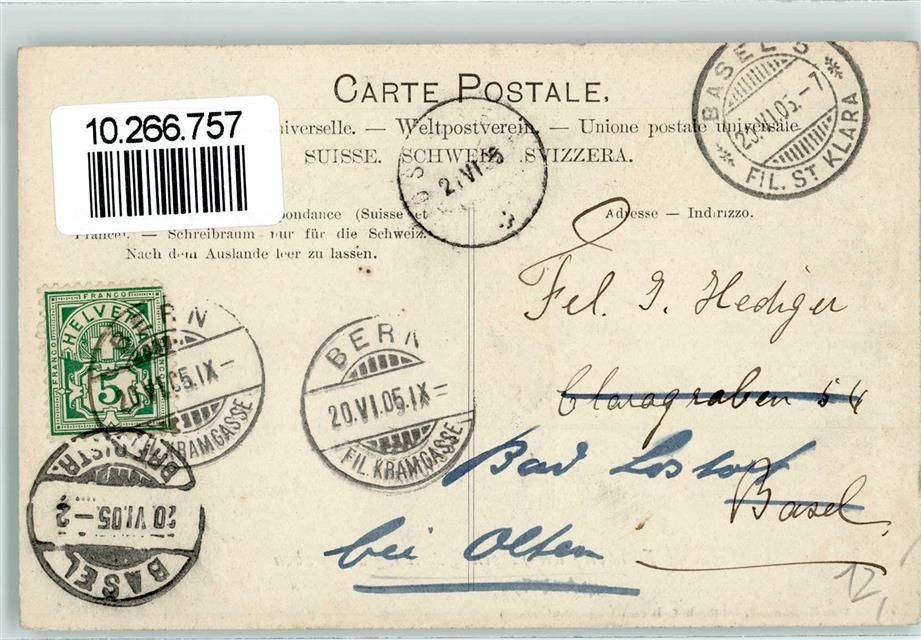 CARTE POSTALE.
10.266.757
niverselle. — Weltpostverein. — Unione postale universale
SUISSE. SCHWEIZ. SVIZZERA.
BASEL
23.VI.05.-7
FIL. ST KLARA
2 VI 05
pondance (Suisse et
France). — Schreibraum nur für die Schweiz.
Nach dem Auslande leer zu lassen.
Adresse — Indirizzo.
Frl. J. Hediger
Claragraben 54
Bad Lostorf
Basel
bei Olten
FRANCO
HELVETIA
FRANCO
5
BERN
20.VI.05.IX-
FIL. KRAMGASSE
BERN
20.VI.05.IX-
FIL. KRAMGASSE
BRF.DISTR.
20 VI 05-2
BASEL
12,